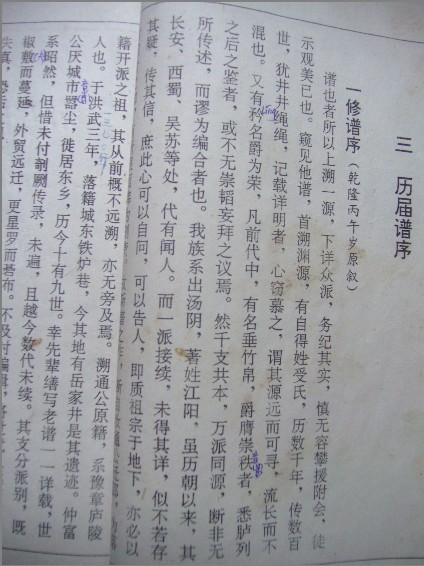 三 历届谱序
一修谱序(乾隆丙午岁原叙)
谱也者所以上溯一源,下详众派,务纪其实,慎无容攀援附会,徒
示观美已也。窥见他谱,首溯渊源,有自得姓受氏,历数千年,传数百
世,犹井井绳绳,记载详明者,心窃慕之,谓其源远而可寻,流长而不
混也。又有矜名爵为荣,凡前代中,有名垂竹帛,爵膺崇秩者,悉胪列
之后之鉴者,或不无崇韬妄拜之议焉。然千支共本,万派同源,断非无
所传述,而谬为编合者也。我族系出汤阴,著姓江阳,虽历朝以来,其
长安、西蜀、吴苏等处,代有闻人。而一派接续,未得其详,似不若存
其疑,传其信,庶此心可以自问,可以告人,即质祖宗于地下,亦必以
籍开派之祖,其从前概不远溯,亦无旁及焉。溯通公原籍,系豫章庐陵
人也。于洪武三年,落籍城东铁炉巷,今其地有岳家井是其遗迹。仲富
公厌城市嚣尘,徙居东乡,历今十有九世。幸先辈缮写老谱一一详载,世
系昭然,但惜未付剞劂传录,未遍,且越今数代未续。其支分派别,既
椒敷而蔓延,外贸远迁,更星罗而棋布。不及时编辑,
失真,